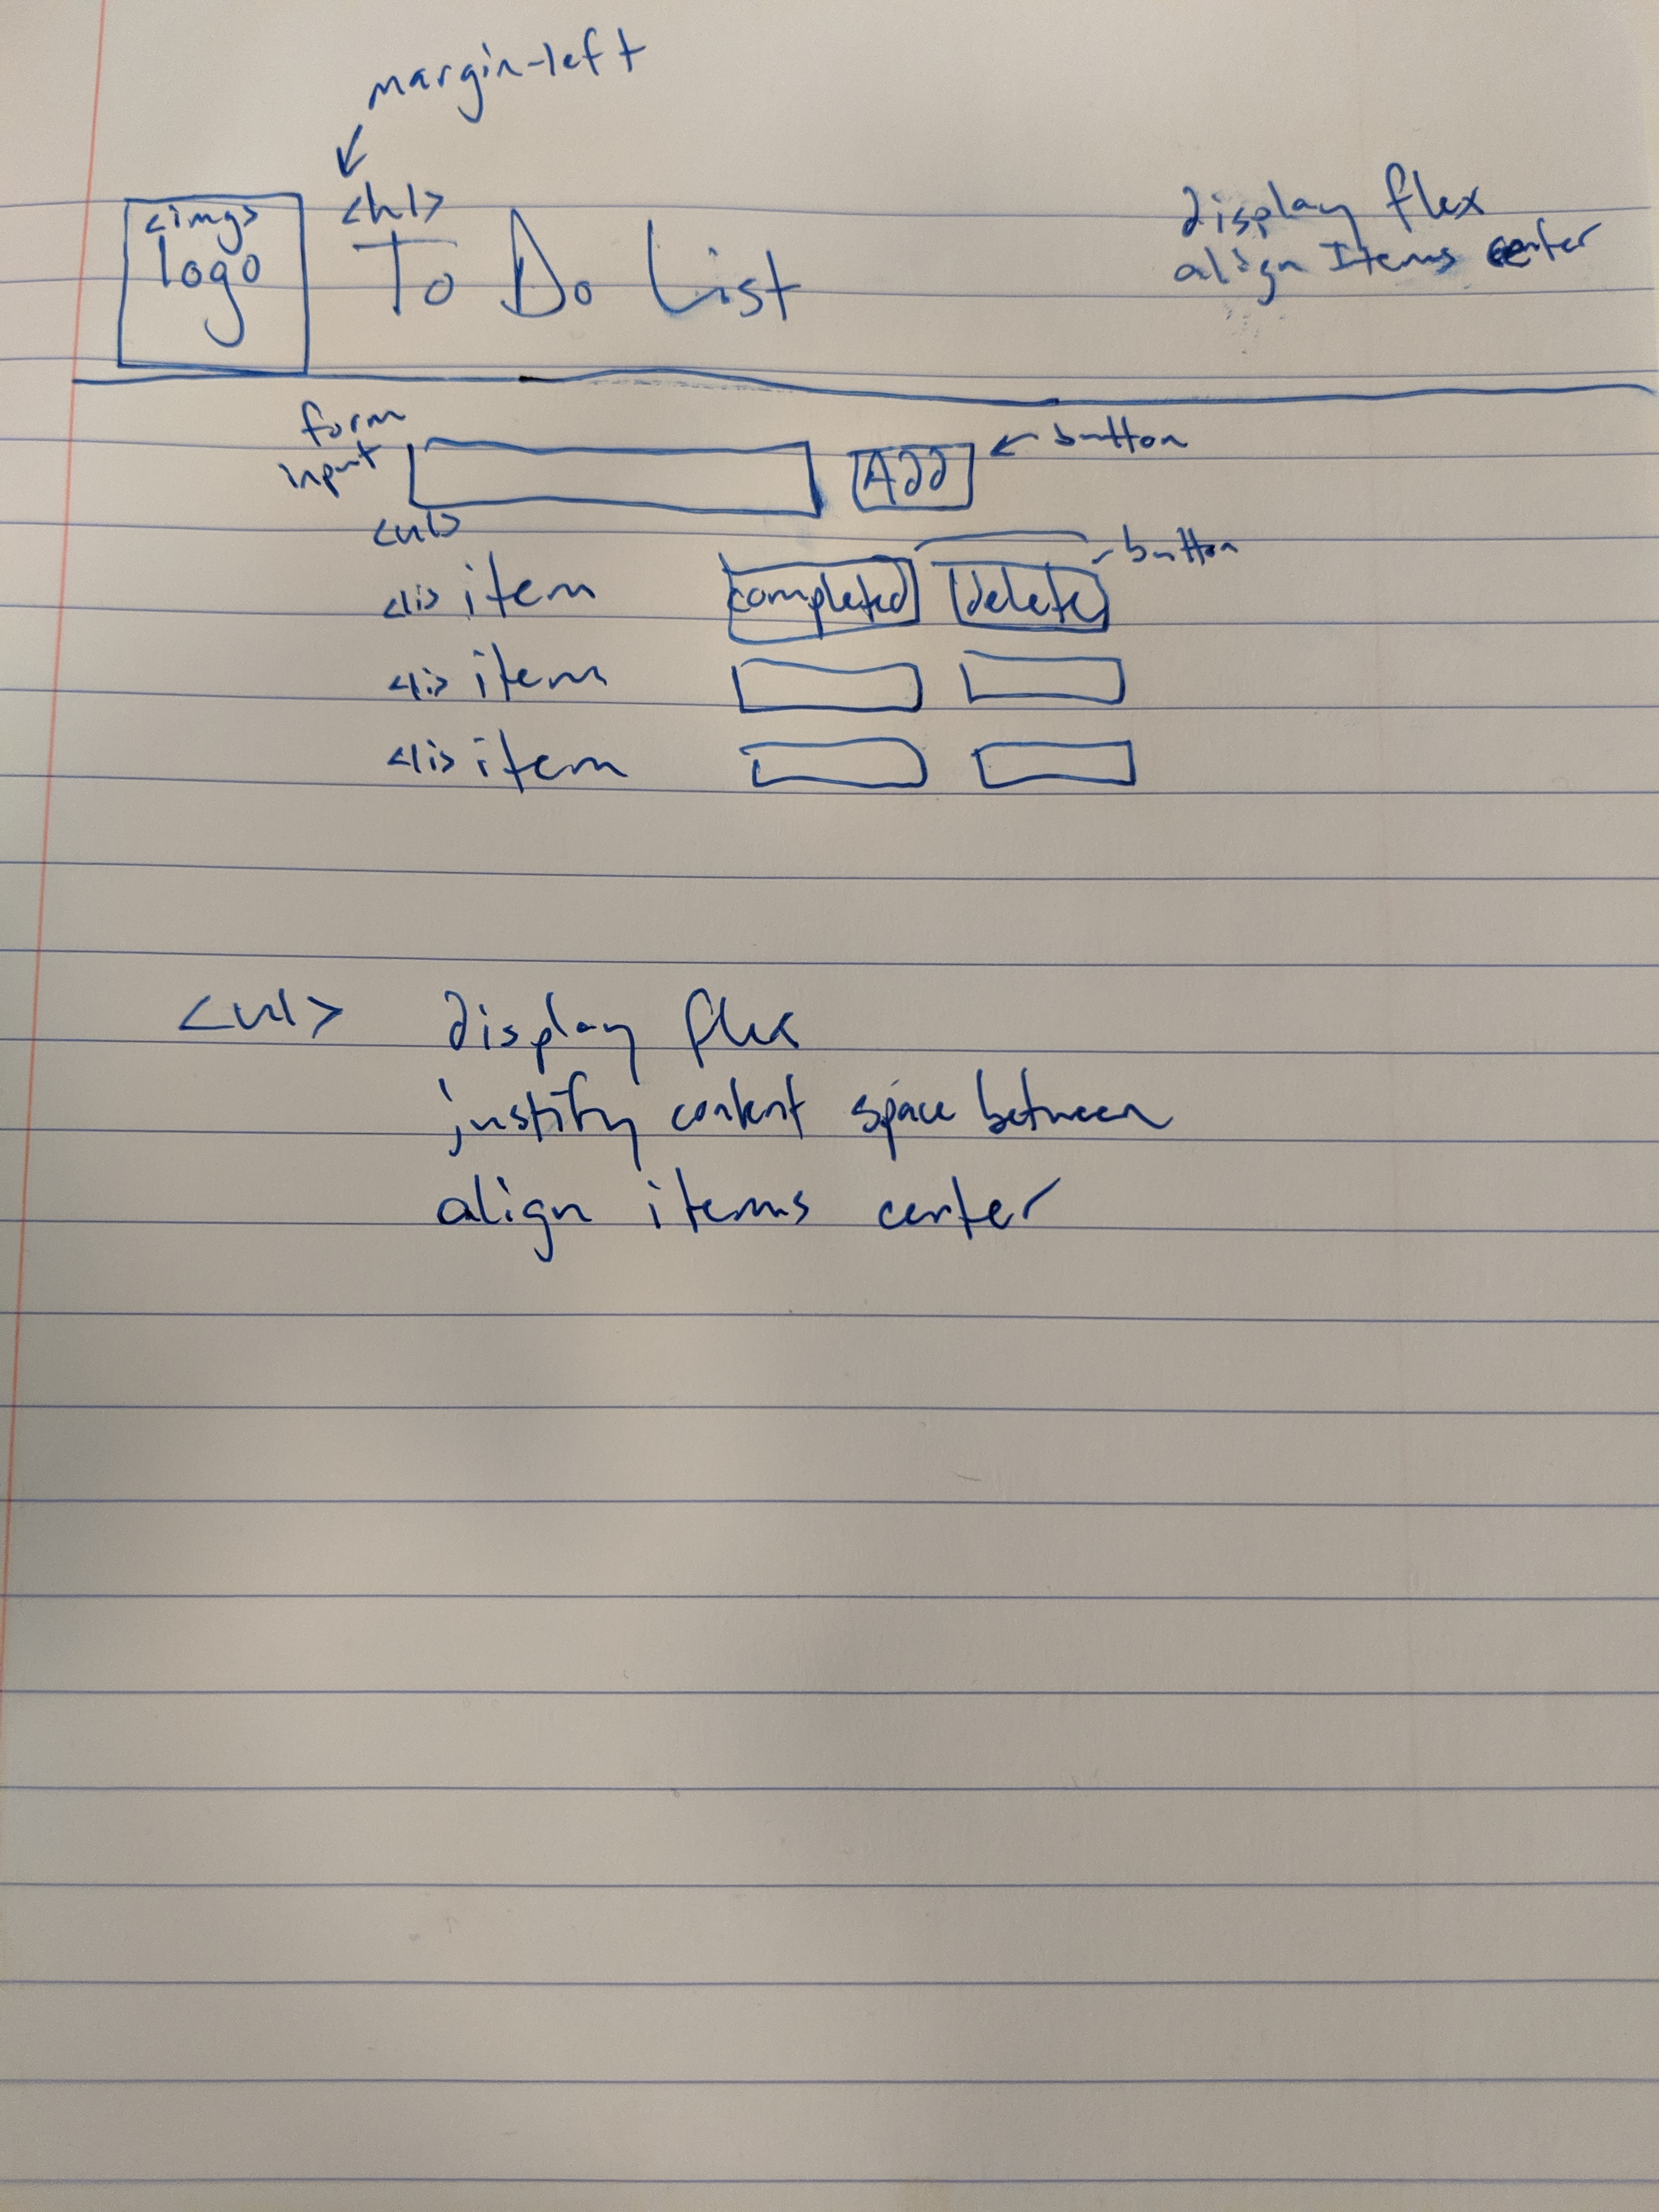 margin-left
<img>
logo
<h1>
To Do List
display flex
align Items center
form
input
Add
button
<ul>
button
<li> item completed delete
<li> item
<li> item
<ul> display flex
justify content space between
align items center